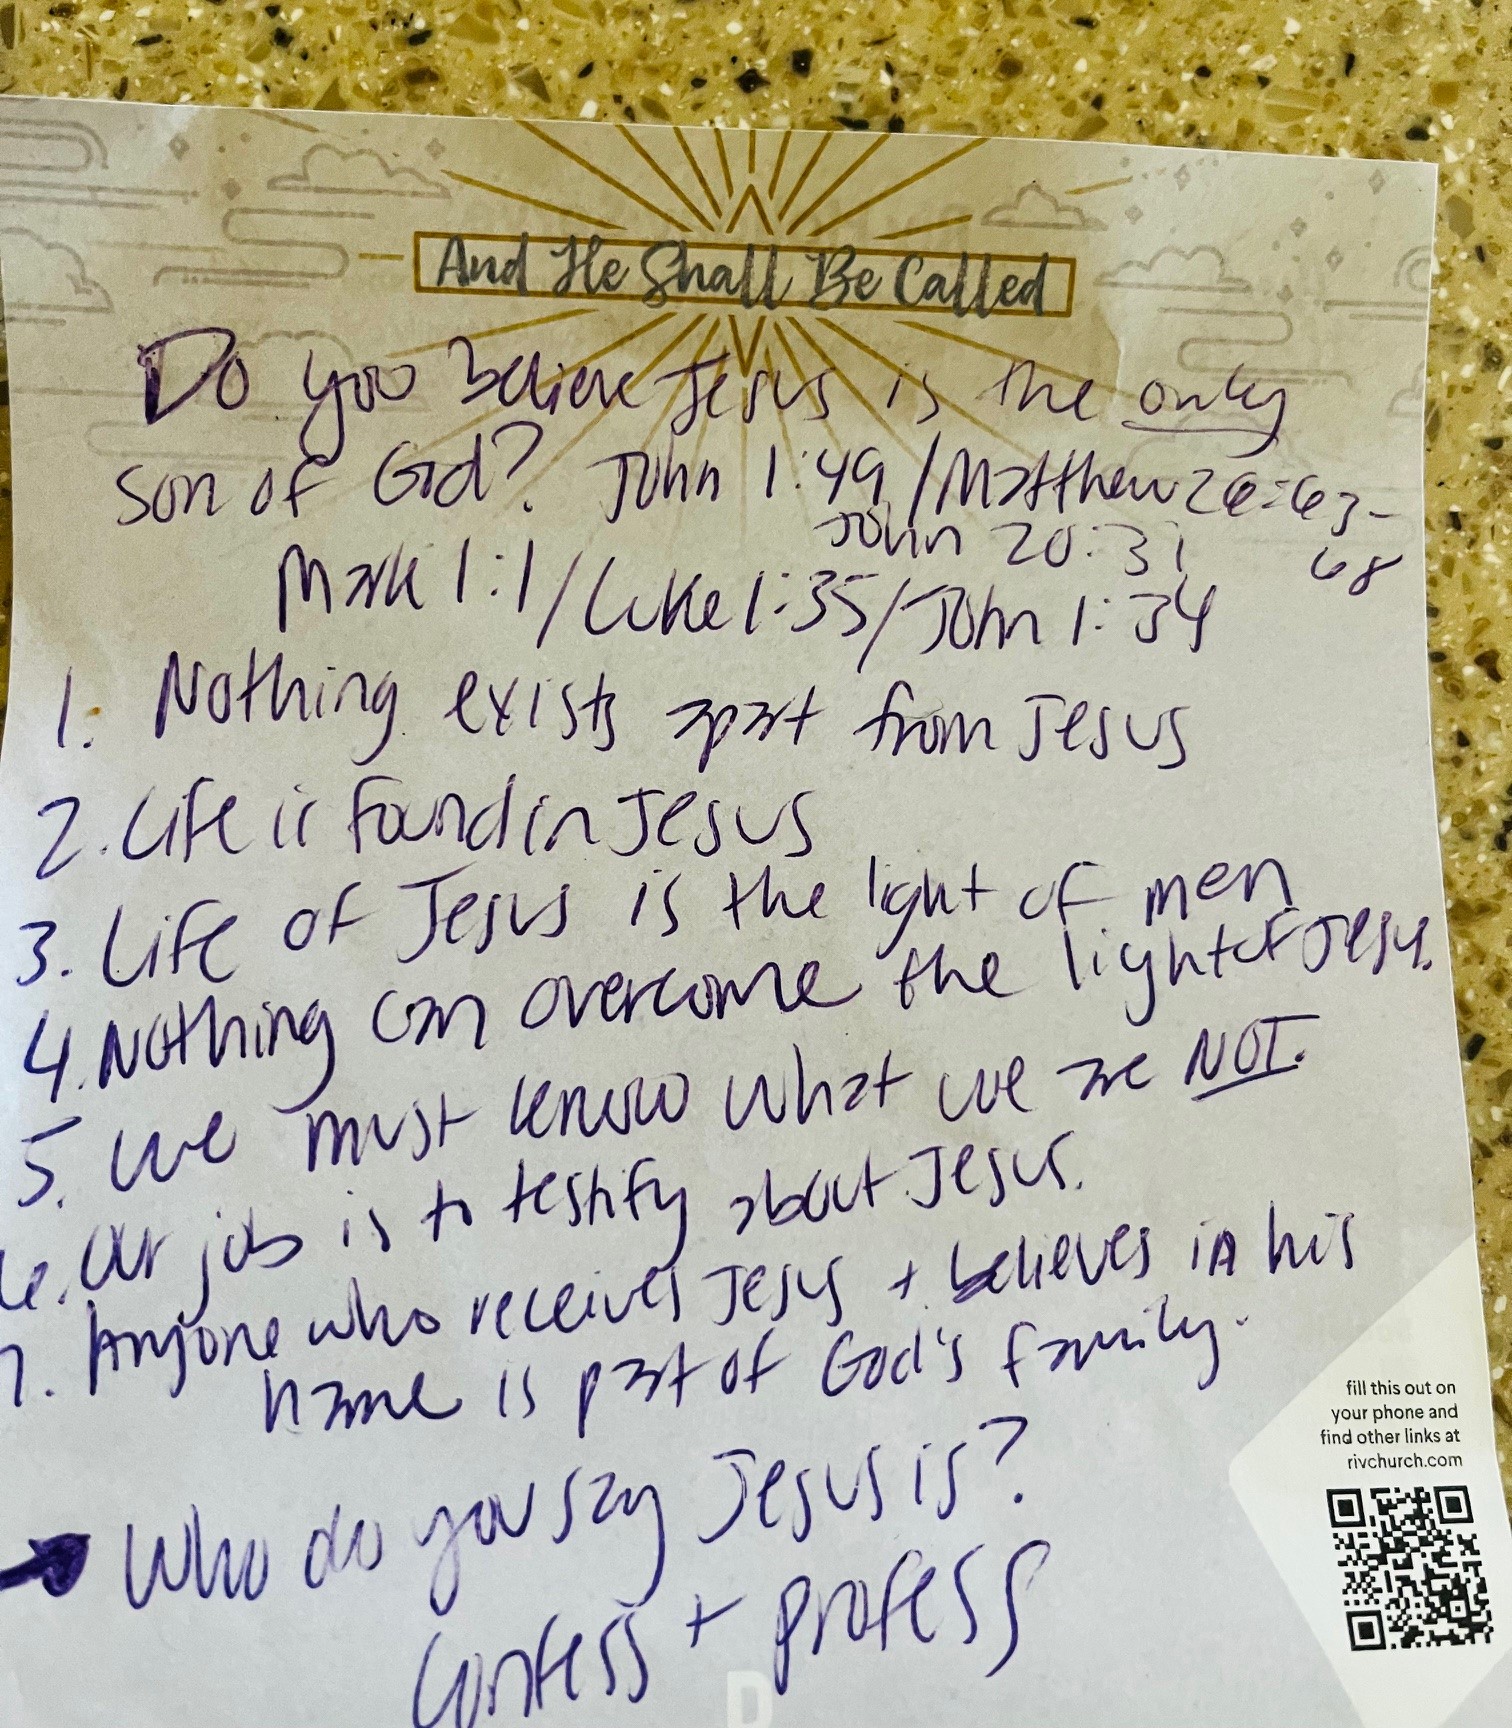 And He Shall Be Called
Do you believe Jesus is the only
son of God? John 1:49 / Matthew 26:63-
68
John 20:31
Mark 1:1 / Luke 1:35 / John 1:34
1. Nothing exists apart from Jesus
2. Life is found in Jesus
3. Life of Jesus is the light of men
4. Nothing can overcome the light of Jesus.
5. We must know what we are NOT.
6. Our job is to testify about Jesus.
7. Anyone who receives Jesus + believes in his
name is part of God's family.
→ Who do you say Jesus is?
Confess + profess
fill this out on
your phone and
find other links at
rivchurch.com